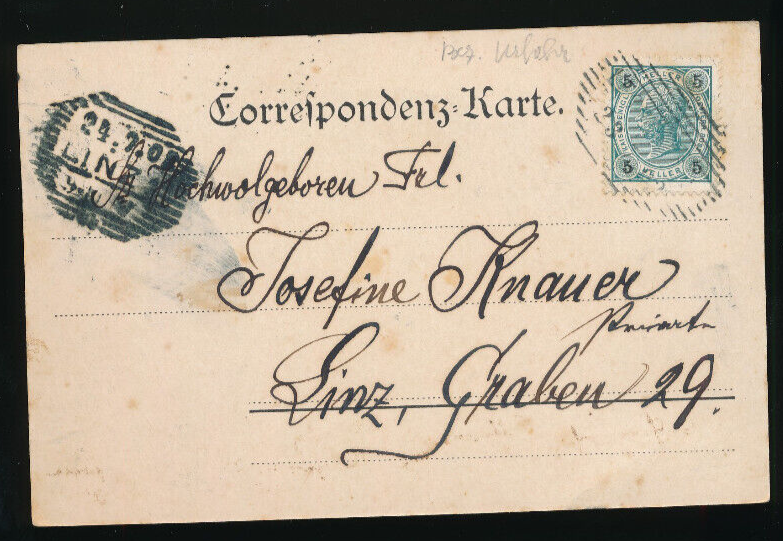 Bez. Urfahr
Correspondenz-Karte.
5 HELLER 5
5 HELLER 5
LINZ
Hochwolgeboren Frl.
Josefine Knauer
Private
Linz, Graben 29.